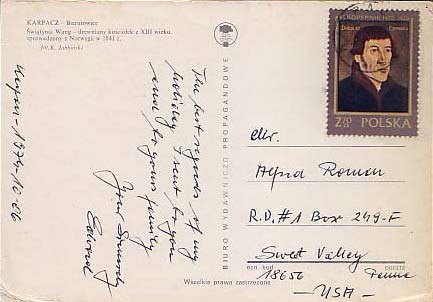 KARPACZ - Bierutowice
Świątynia Wang - drewniany kościółek z XIII wieku,
sprowadzony z Norwegii w 1841 r.
fot. K. Jabłoński
1974-10-06
The best regards of my
holiday I sent to you
and to your family
Your
Edward
BIURO WYDAWNICZO PROPAGANDOWE
M. KOPERNIK 1473
2,70 POLSKA
Mr.
Alfred Roman
R.D.#1 Box 249-F
Sweet Valley
ozn. kod poczta
18656 Penna
-USA-
Wszelkie prawa zastrzeżone